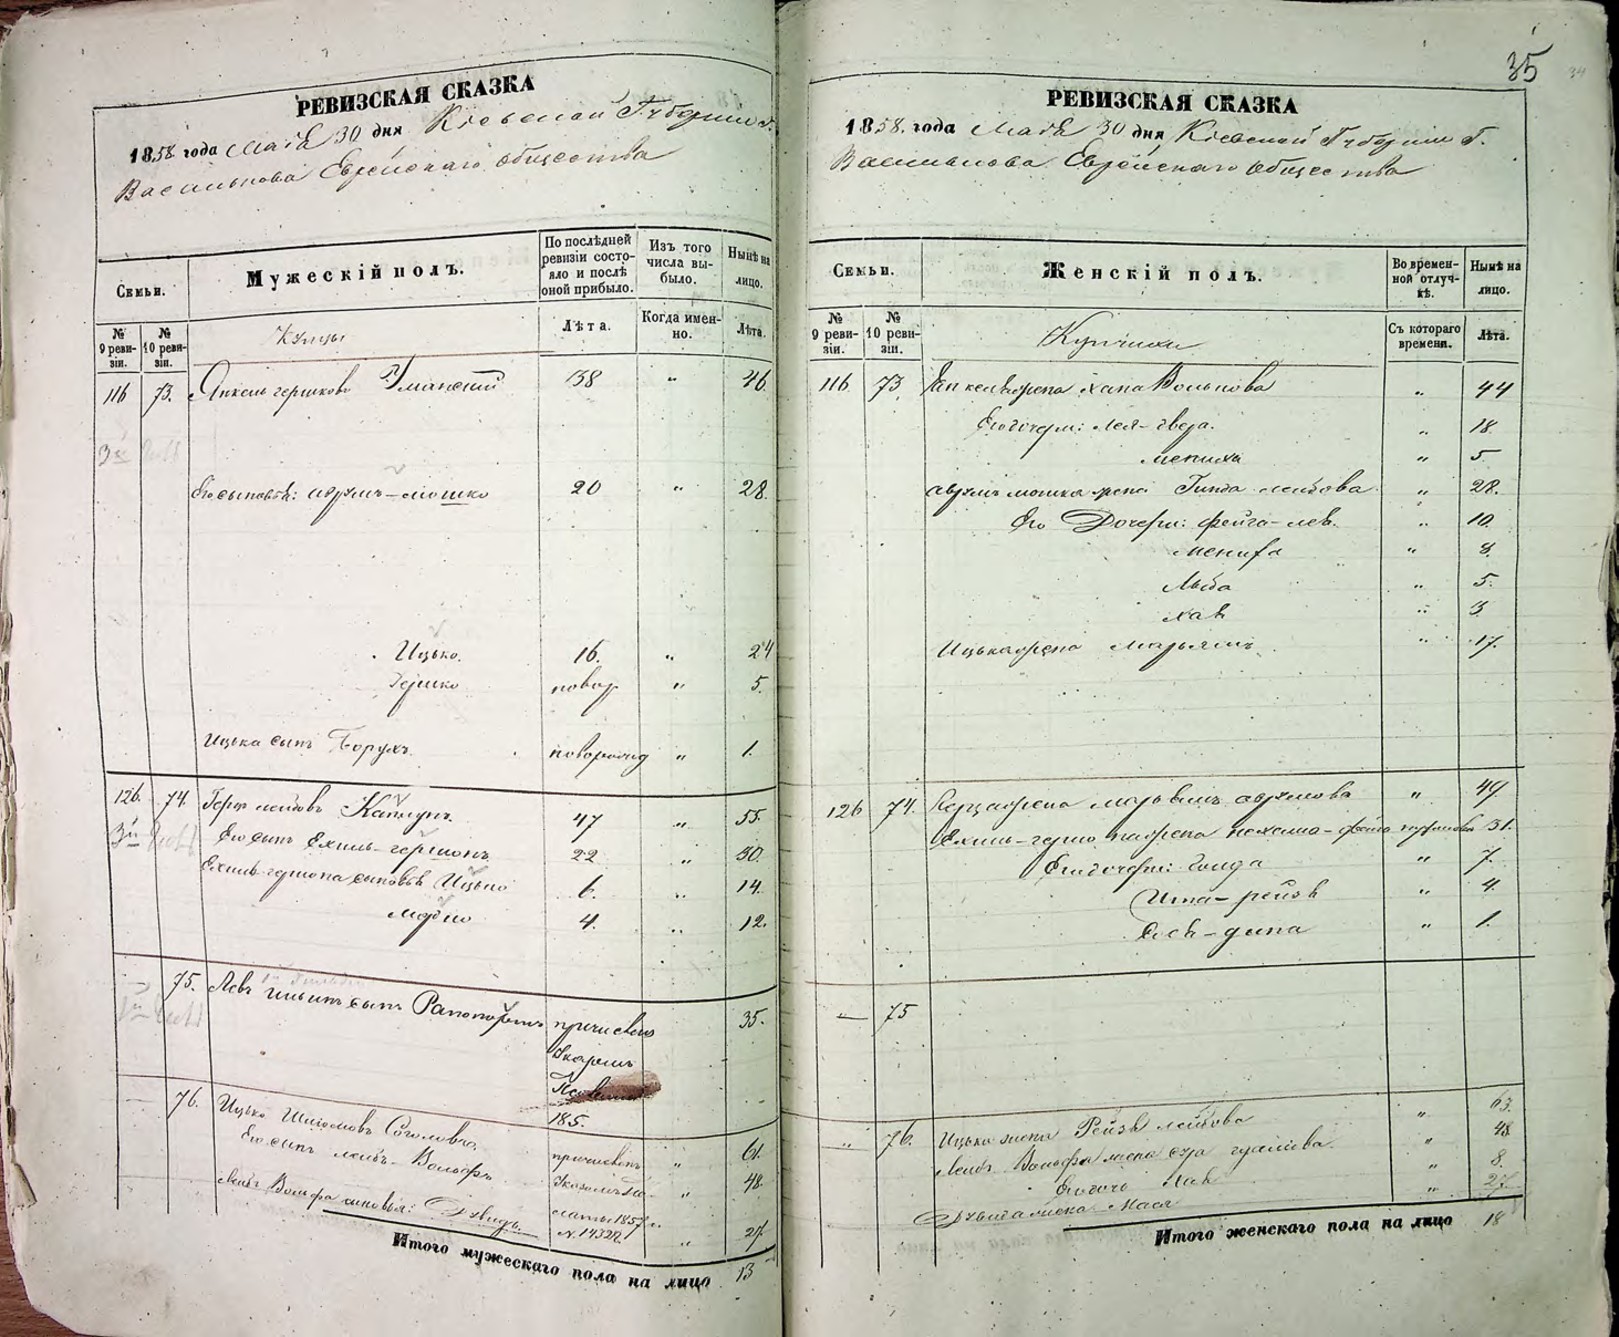 РЕВИЗСКАЯ СКАЗКА
1858 года Маія 30 дня Кіевской Губерніи г.
Василькова Еврейскаго общества
Семьи.
Мужескій полъ.
По послѣдней ревизіи состояло и послѣ оной прибыло.
Изъ того числа выбыло.
Нынѣ на лицо.
№ 9 ревизіи.
№ 10 ревизіи.
Купцы
Лѣта.
Когда именно.
Лѣта.
116 73. Янкель Гершковъ Уманский 38 " 46.
Его сыновья: Аврумъ-Мошко 20 " 28.
Ицько. 16. " 24
Гершко новор " 5.
Ицька сынъ Борухъ. новорожд " 1.
126. 74. Герш Лейбовъ Каплунъ. 47 " 55.
Его сынъ Ехиль-Гершонъ 22 " 30.
Ехиль-Гершона сыновья Ицько 6. " 14.
Мордко 4. " 12.
— 75. Левъ сынъ Рапопортъ причисленъ 35.
185.
— 76. Ицько Шліомовъ 61.
причисленъ "
Его сынъ Лейбъ-Вольфъ 48.
1857 г.
Лейбъ Вольфа сыновья: Дувидъ. №. 14322. " 27.
Итого мужескаго пола на лицо 13
35
34
РЕВИЗСКАЯ СКАЗКА
1858. года Маія 30 дня Кіевской Губерніи г.
Василькова Еврейскаго общества
Семьи.
Женскій полъ.
Во временной отлучкѣ.
Нынѣ на лицо.
№ 9 ревизіи.
№ 10 ревизіи.
Купчихи
Съ котораго времени.
Лѣта.
116. 73. Янкеля жена Хана Волькова " 44
Его дочери: Лея-Двера. " 18.
Мениха " 5.
Аврумъ Мошка жена Гинда Лейбова " 28.
Его Дочери: Фейга-Лея. " 10.
Мениха " 8.
Либа " 5.
Хая " 3
Ицька жена Марьямъ " 17.
126 74. жена Марьямъ Аврумова " 49.
Ехиль-Гершона жена Нехама- 31.
Его дочери: " 7.
Ита-Рейзя " 4.
-Дина " 1.
— 75
" 76. Ицька жена Рейзя Лейбова " 63.
Лейбъ Вольфа жена " 48
Его дочь Хая " 8.
Дувида жена Мася " 27.
Итого женскаго пола на лицо 18